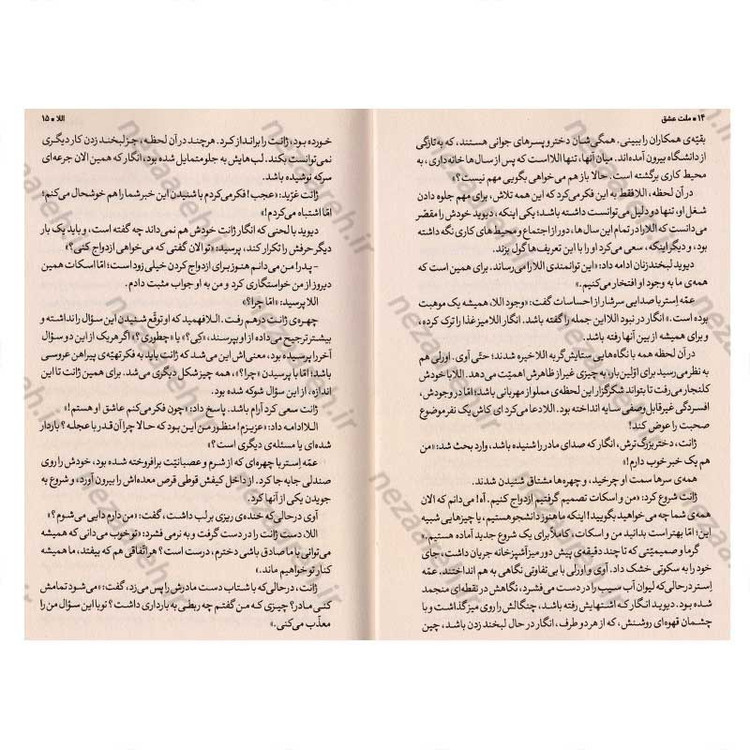 ۱۴ • ملت عشق
بقیه‌ی همکاران را ببینی. همگی‌شان دختر و پسرهای جوانی هستند، که به‌تازگی
از دانشگاه بیرون آمده‌اند. میان آنها، تنها اللا است که پس از سال‌ها خانه‌داری، به
محیط کاری برگشته است. حالا باز هم می‌خواهی بگویی مهم نیست؟»
در آن لحظه، اللا فقط به این فکر می‌کرد که این همه تلاش، برای مهم جلوه دادن
شغل او، تنها دو دلیل می‌توانست داشته باشد؛ یکی اینکه، دیوید خودش را مقصّر
می‌دانست که اللا را در تمام این سال‌ها، دور از اجتماع و محیط‌های کاری نگه داشته
بود، و دیگر اینکه، سعی می‌کرد او را با این تعریف‌ها گول بزند.
دیوید لبخندزنان ادامه داد: «این توانمندی اللا را می‌رساند. برای همین است که
همه‌ی ما به وجود او افتخار می‌کنیم.»
عمّه اِستر با صدایی سرشار از احساسات گفت: «وجود اللا، همیشه یک موهبت
بوده است.» انگار در نبود اللا این جمله را گفته باشد. انگار اللا میز غذا را ترک کرده،
و برای همیشه از بین آنها رفته باشد.
در آن لحظه همه با نگاه‌هایی ستایش‌گر به اللا خیره شدند؛ حتّی آوی. اورلی هم
به نظر می‌رسید برای اوّلین بار، به چیزی غیر از ظاهرش اهمیّت می‌دهد. اللا با خودش
کلنجار می‌رفت تا بتواند شکرگزار این لحظه‌ی مملو از مهربانی باشد؛ امّا در وجودش،
افسردگی غیرقابل وصفی سایه انداخته بود. اللا دعا می‌کرد ای کاش یک نفر موضوع
صحبت را عوض کند!
ژانت، دختر بزرگ‌ترش، انگار که صدای مادر را شنیده باشد، وارد بحث شد: «من
هم یک خبر خوب دارم!»
همه‌ی سرها سمت او چرخید، و چهره‌ها مشتاق شنیدن شدند.
ژانت شروع کرد: «من و اسکات تصمیم گرفتیم ازدواج کنیم. آه! می‌دانم که الان
همه‌ی شما چه می‌خواهید بگویید! اینکه ما هنوز دانشجو هستیم، یا چیزهایی شبیه
این؛ امّا بهتر است بدانید من و اسکات، کاملاً برای یک شروع جدید آماده هستیم.»
گرما و صمیمیّتی که تا چند دقیقه‌ی پیش دور میز آشپزخانه جریان داشت، جای
خود را به سکوتی خشک داد. آوی و اورلی با بی‌تفاوتی نگاهی به هم انداختند. عمّه
اِستر درحالی‌که لیوان آب سیب را در دست می‌فشرد، نگاهش در نقطه‌ای منجمد
شده بود. دیوید انگار که اشتهایش رفته باشد، چنگالش را روی میز گذاشت و با
چشمان قهوه‌ای روشنش، که از هر دو طرف، انگار در حال لبخند زدن باشد، چین
اللا • ۱۵
خورده بود، ژانت را برانداز کرد. هرچند در آن لحظه، جز لبخند زدن کار دیگری
نمی‌توانست بکند. لب‌هایش به جلو متمایل شده بود، انگار که همین الان جرعه‌ای
سرکه نوشیده باشد.
ژانت غرّید: «عجب! فکر می‌کردم با شنیدن این خبر شما را هم خوشحال می‌کنم؛
امّا اشتباه می‌کردم!»
دیوید با لحنی که انگار ژانت خودش هم نمی‌داند چه گفته است، و باید یک بار
دیگر حرفش را تکرار کند، پرسید: «تو الان گفتی که می‌خواهی ازدواج کنی؟»
- پدر! من می‌دانم هنوز برای ازدواج کردن خیلی زود است؛ امّا اسکات همین
دیروز از من خواستگاری کرد و من به او جواب مثبت دادم.
اللا پرسید: «امّا چرا؟»
چهره‌ی ژانت درهم رفت. اللا فهمید که او توقع شنیدن این سؤال را نداشته و
بیشتر ترجیح می‌داده از او بپرسند، «کِی؟» یا «چطوری؟» اگر هر یک از این دو سؤال
آخر را پرسیده بود، معنی‌اش این می‌شد که ژانت باید به فکر تهیّه‌ی پیراهن عروسی
باشد؛ امّا با پرسیدن «چرا؟»، همه چیز شکل دیگری می‌شد. برای همین ژانت تا این
اندازه، از این سؤال شوکه شده بود.
ژانت سعی کرد آرام باشد. پاسخ داد: «چون فکر می‌کنم عاشق او هستم!»
اللا ادامه داد: «عزیزم! منظور من این بود که حالا چرا آن‌قدر با عجله؟ باردار
شده‌ای یا مسئله‌ی دیگری است؟»
عمّه اِستر با چهره‌ای که از شرم و عصبانیّت برافروخته شده بود، خودش را روی
صندلی جابه‌جا کرد. از داخل کیفش قوطی قرص معده‌اش را بیرون آورد، و شروع به
جویدن یکی از آنها کرد.
آوی درحالی‌که خنده‌ی ریزی بر لب داشت، گفت: «من دارم دایی می‌شوم؟»
اللا، دست ژانت را در دست گرفت و به نرمی فشرد: «تو خوب می‌دانی که همیشه
می‌توانی با ما صادق باشی دخترم، درست است؟ هر اتّفاقی هم که بیفتد، ما همیشه
کنار تو خواهیم ماند.»
ژانت، درحالی‌که با شتاب دست مادرش را پس می‌زد، گفت: «می‌شود تمامش
کنی مادر؟ چیزی که من گفتم چه ربطی به بارداری داشت؟ تو با این سؤال من را
معذّب می‌کنی.»
nezaareh.ir